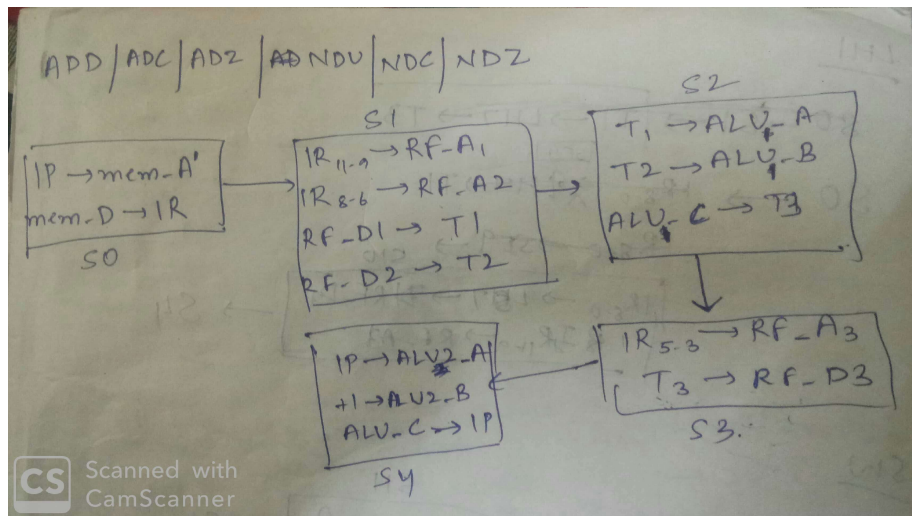 ADD/ADC/ADZ/NDU/NDC/NDZ
S0
IP → mem-A'
mem-D → IR
S1
IR 11-9 → RF-A1
IR 8-6 → RF-A2
RF-D1 → T1
RF-D2 → T2
S2
T1 → ALU1-A
T2 → ALU1-B
ALU1-C → T3
IR 5-3 → RF-A3
T3 → RF-D3
S3.
IP → ALU2-A
+1 → ALU2-B
ALU-C → IP
S4
CS Scanned with
CamScanner